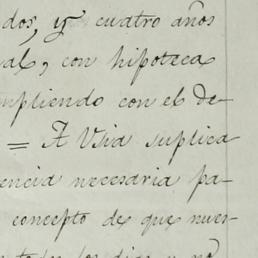 dos, y cuatro años
al, con hipoteca
mpliendo con el de-
= A Usia suplica
encia necesaria pa-
concepto de que nues-
todos los dias y no